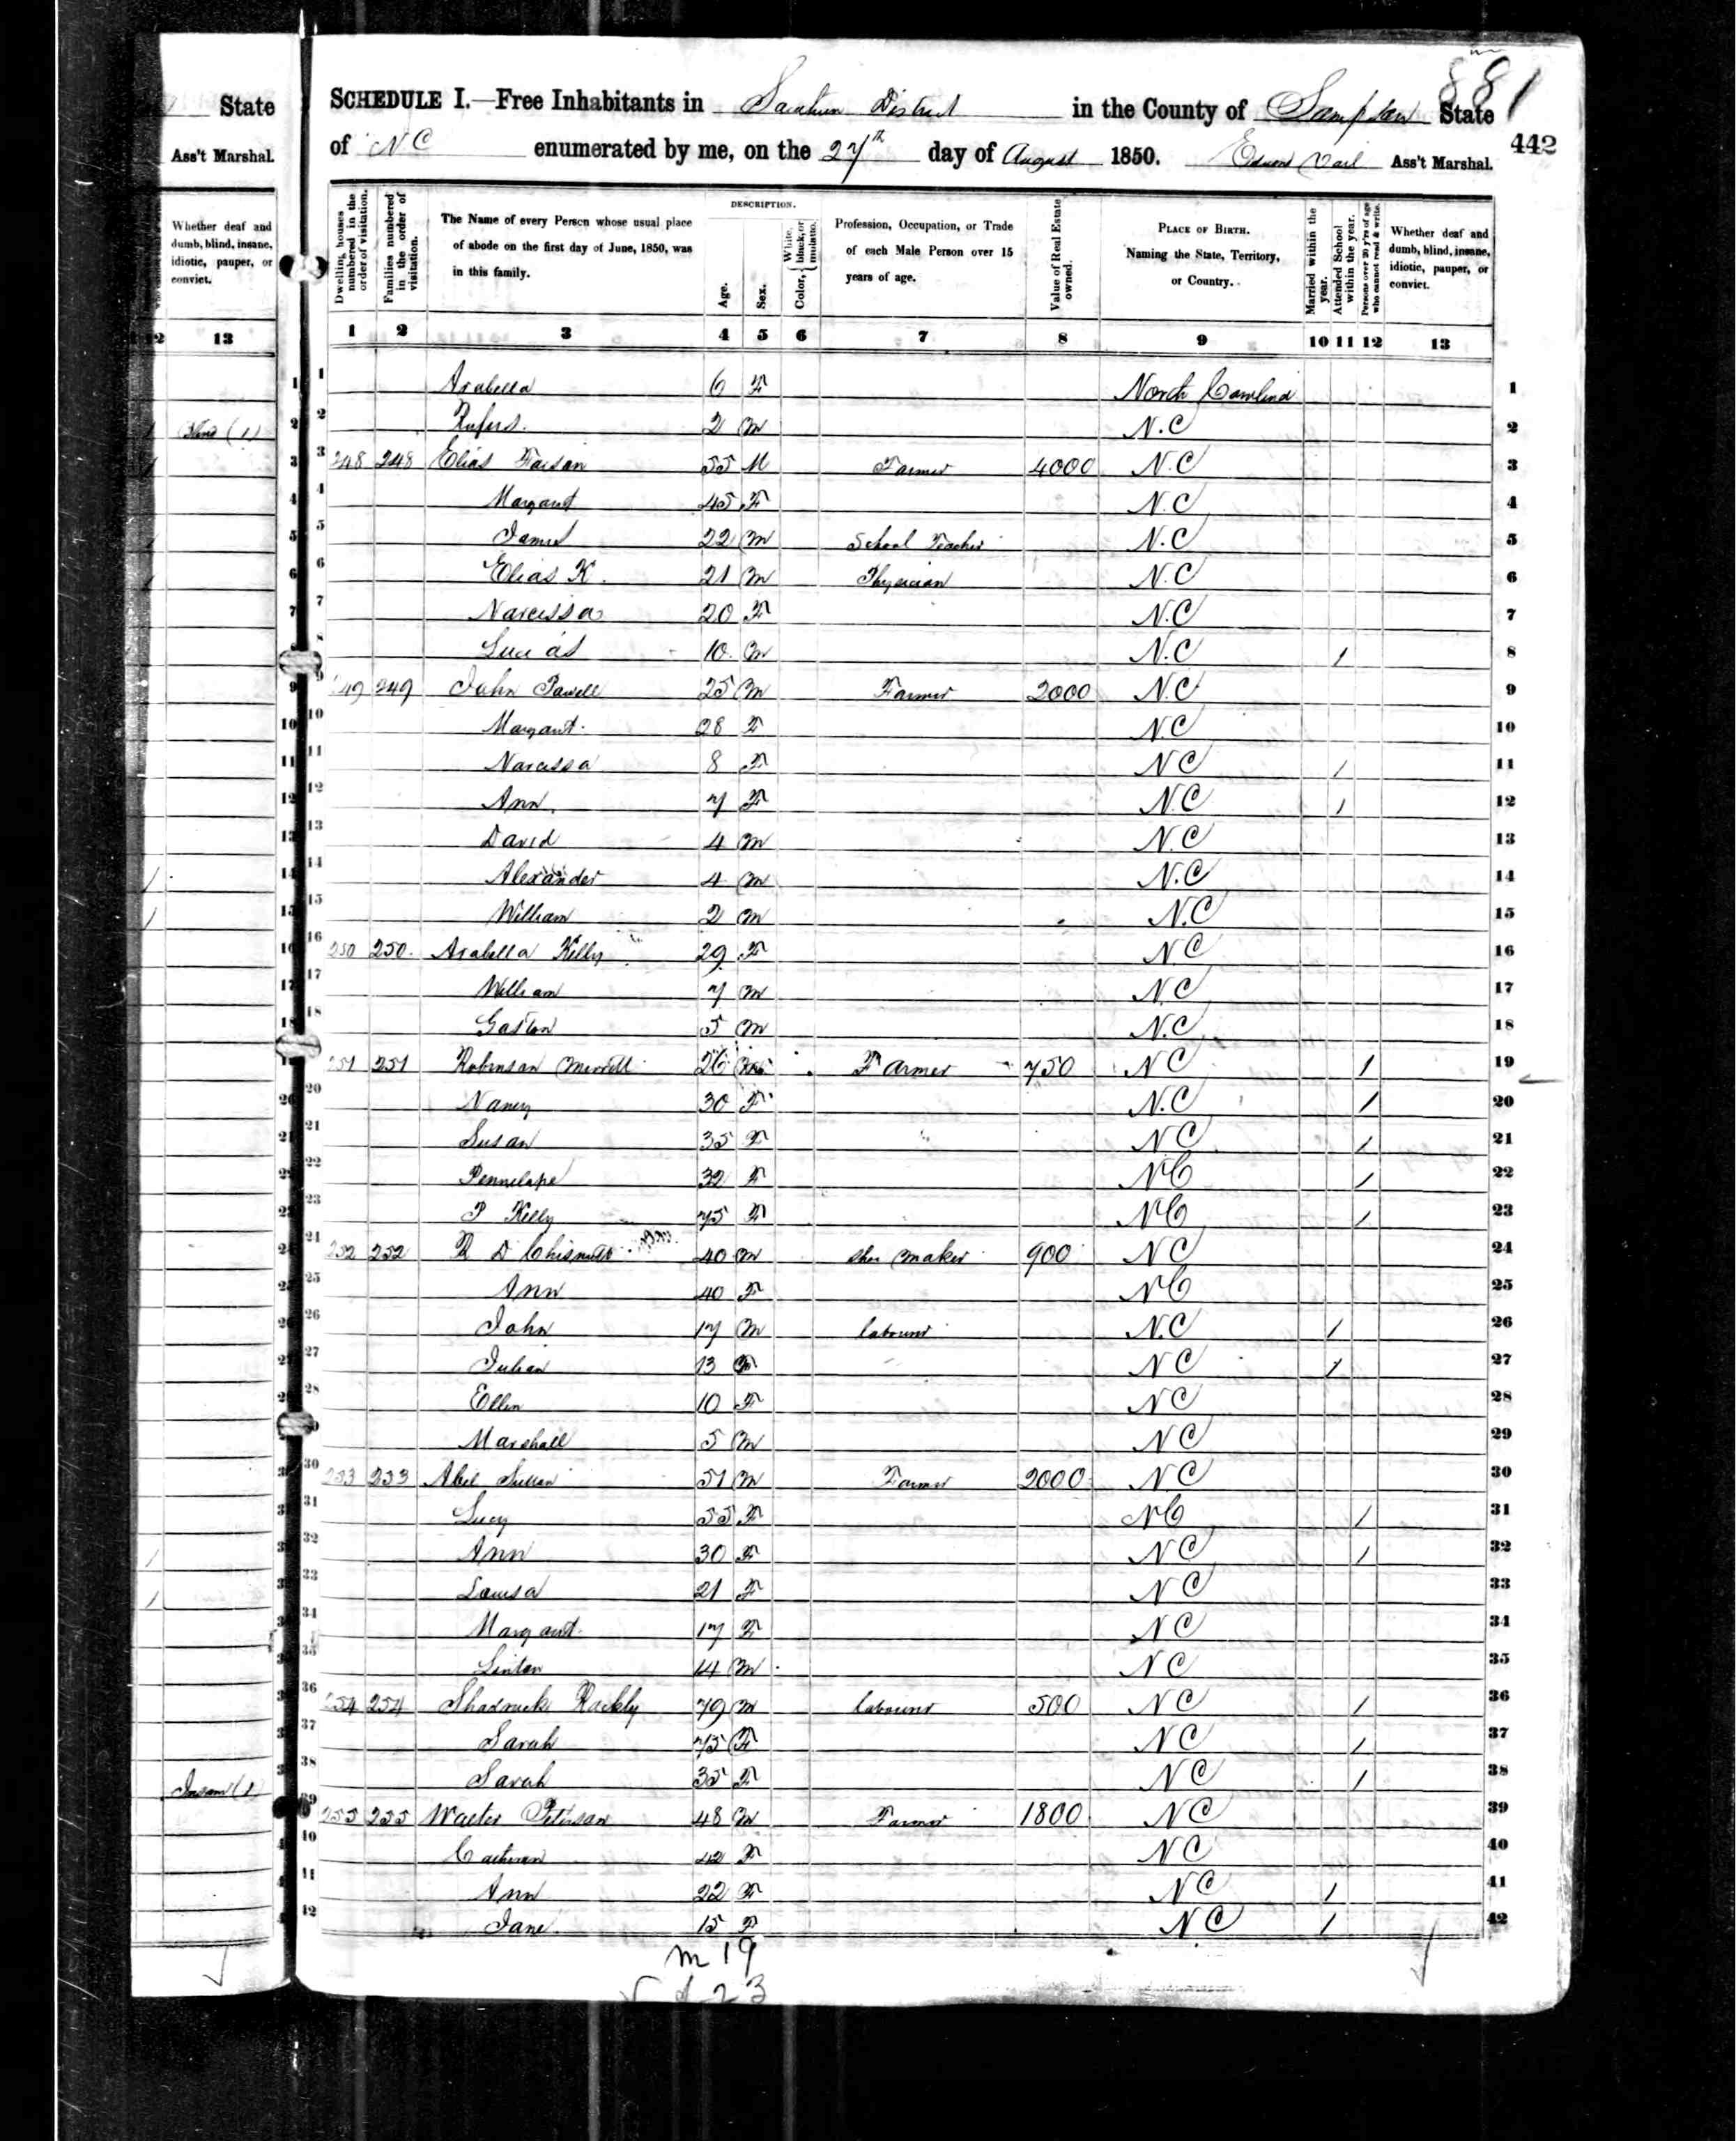 881
State
Ass't Marshal.
Whether deaf and dumb, blind, insane, idiotic, pauper, or convict.
12 13
SCHEDULE I.—Free Inhabitants in District in the County of Sampson State
442
of N C enumerated by me, on the 27th day of August 1850. Ass't Marshal.
Dwelling houses numbered in the order of visitation.
Families numbered in the order of visitation.
The Name of every Person whose usual place of abode on the first day of June, 1850, was in this family.
DESCRIPTION.
Age.
Sex.
Color, { White, black, or mulatto.
Profession, Occupation, or Trade of each Male Person over 15 years of age.
Value of Real Estate owned.
PLACE OF BIRTH. Naming the State, Territory, or Country.
Married within the year.
Attended School within the year.
Persons over 20 y'rs of age who cannot read & write.
Whether deaf and dumb, blind, insane, idiotic, pauper, or convict.
1 2 3 4 5 6 7 8 9 10 11 12 13
1 Arabella 6 F North Carolina 1
2 Rufus. 2 M N.C 2
3 248 248 Elias Faison 55 M Farmer 4000 N.C 3
4 Margaret 45 F N.C 4
5 James 22 M School Teacher N.C 5
6 Elias K. 21 M Physician N.C 6
7 Narcissa 20 F N.C 7
8 10 M N.C / 8
9 249 249 John Powell 25 M Farmer 2000 N.C 9
10 Margaret 28 F N.C 10
11 Narcissa 8 F N C / 11
12 Ann. 7 F N.C / 12
13 David 4 M N.C 13
14 Alexander 4 M N.C 14
15 William 2 M N.C 15
16 250 250. Arabella Kelly 29 F N.C 16
17 William 7 M N.C 17
18 Gaston 5 M N.C 18
19 251 251 Robinson Merritt 26 Farmer 750 N C / 19
20 Nancy 30 F N.C / 20
21 Susan 35 F N C / 21
22 Pennelope 32 F N C / 22
23 P Kelly 75 F N C / 23
24 252 252 R D 40 M Shoe Maker 900 N C 24
25 Ann 40 F N C 25
26 John 17 M labourer N.C / 26
27 Julian 13 N C / 27
28 Ellen 10 F N C 28
29 Marshall 5 M N C 29
30 253 253 Abel 51 M Farmer 2000 N.C 30
31 Lucy 55 F N C / 31
32 Ann 30 F N C / 32
33 Louisa 21 F N C 33
34 Margaret 17 F N C 34
35 Linton 14 M N C 35
36 254 254 Shadrack Rackly 79 M labourer 500 N C / 36
37 Sarah 75 F N C / 37
38 Sarah 35 F N C / 38
39 255 255 Walter Peterson 48 M Farmer 1800 N C 39
40 42 F N C 40
41 Ann 22 F N C / 41
42 Jane 15 F N.C / 42
m 19
f 23